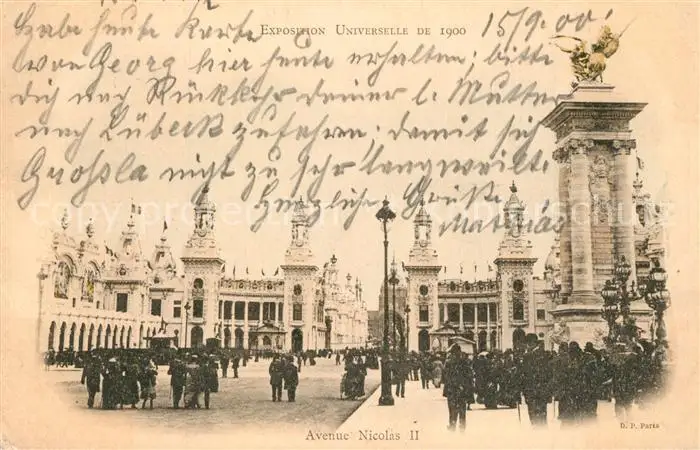 Exposition Universelle de 1900
15/9.00.
Habe heute Karte
von Georg hier heute erhalten; bitte
dich nach Rückkehr deiner l. Mutter
nach Lübeck zufahren, damit sich
Großla nicht zu sehr langweilt.
Herzlichen Gruß
Mathias
copyright
Avenue Nicolas II
D. P. Paris